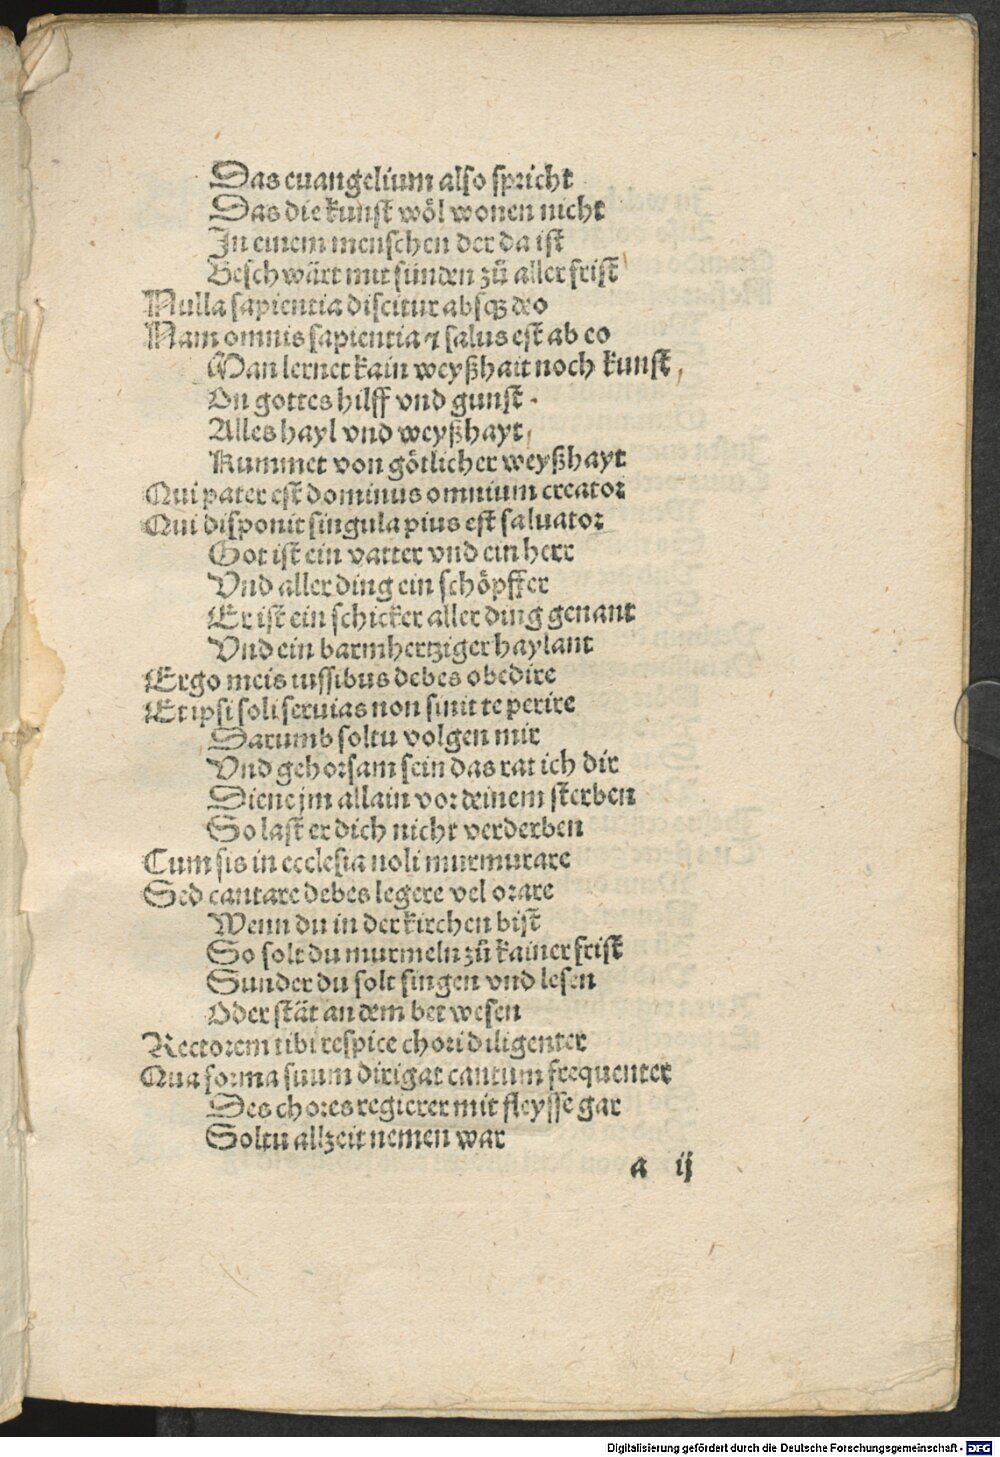 Das euangelium also spricht
Das die kunst wöl wonen nicht
In einem menschen der da ist
Beschwärt mit sünden zů aller frist
Nulla sapientia discitur absqꝫ deo
Nam omnis sapientia ⁊ salus est ab eo
Man lernet kain weyßhait noch kunst /
On gottes hilff vnd gunst .
Alles hayl vnd weyßhayt /
Kummet von götlicher weyßhayt
Qui pater est dominus omnium creator
Qui disponit singula pius est saluator
Got ist ein vatter vnd ein herr
Vnd aller ding ein schöpffer
Er ist ein schicker aller ding genant
Vnd ein barmhertziger haylant
Ergo meis iussibus debes obedire
Et ipsi soli seruias non sinit te perire
Darumb soltu volgen mir
Vnd gehorsam sein das rat ich dir
Diene jm allain vor deinem sterben
So last er dich nicht verderben
Cum sis in ecclesia noli murmurare
Sed cantare debes legere vel orare
Wenn du in der kirchen bist
So solt du murmeln zů kainer frist
Sunder du solt singen vnd lesen
Oder stät an dem bet wesen
Rectorem tibi respice chori diligenter
Qua forma suum dirigat cantum frequenter
Des chores regierer mit fleysse gar
Soltu allzeit nemen war
a ij
Digitalisierung gefördert durch die Deutsche Forschungsgemeinschaft - DFG